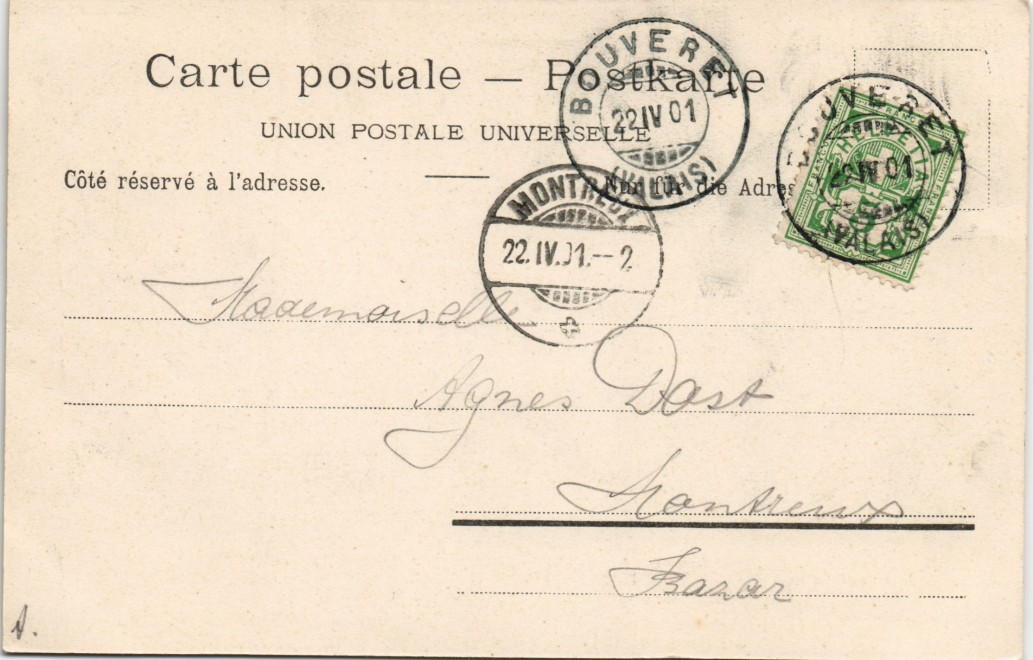 Carte postale — Postkarte
UNION POSTALE UNIVERSELLE
Côté réservé à l'adresse. Nur für die Adres
BOUVERET
22 IV 01
(VALAIS)
BOUVERET
22 IV 01
(VALAIS)
HELVETIA
5
FRANCO
MONTREUX
22. IV. 01.--2
Mademoiselle
Agnes Dast
Montreux
Bazar